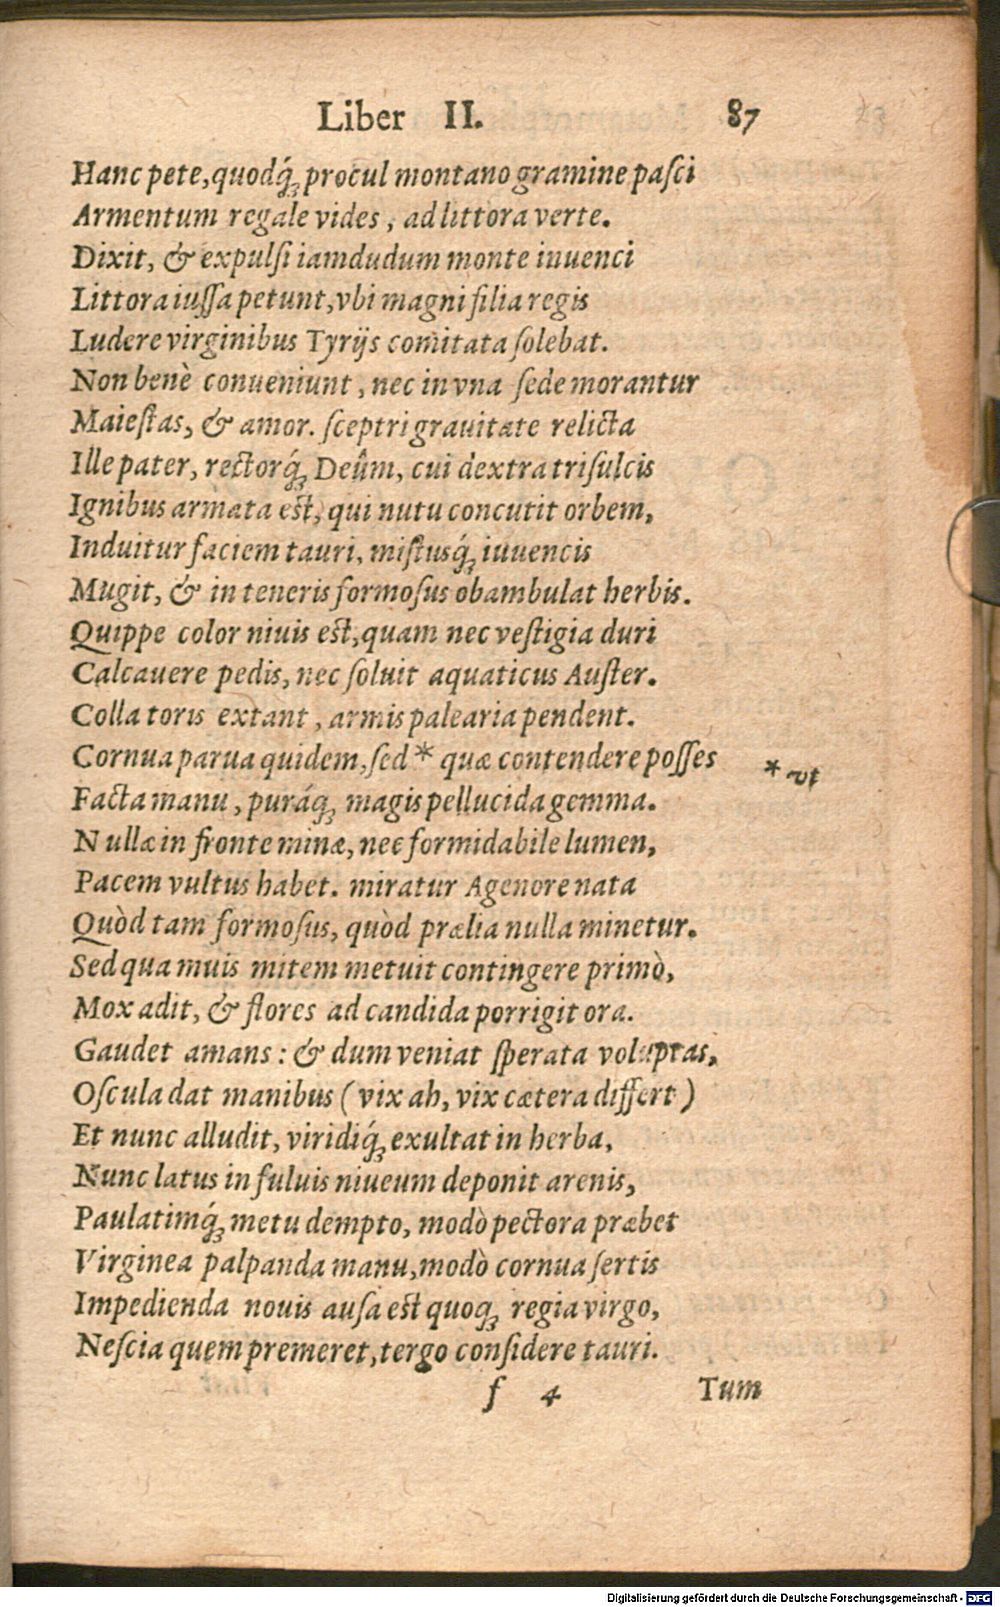 Liber II. 87
Hanc pete, quodq́ꝫ procul montano gramine paſci
Armentum regale vides, ad littora verte.
Dixit, & expulſi iamdudum monte iuuenci
Littora iuſſa petunt, vbi magni filia regis
Ludere virginibus Tyrijs comitata ſolebat.
Non benè conueniunt, nec in vna ſede morantur
Maieſtas, & amor. ſceptri grauitate relicta
Ille pater, rectorq́ꝫ Deûm, cui dextra triſulcis
Ignibus armata eſt, qui nutu concutit orbem,
Induitur faciem tauri, miſtusq́ꝫ iuuencis
Mugit, & in teneris formoſus obambulat herbis.
Quippe color niuis eſt, quam nec veſtigia duri
Calcauere pedis, nec ſoluit aquaticus Auſter.
Colla toris extant, armis palearia pendent.
Cornua parua quidem, ſed * quæ contendere poſſes
* vt
Facta manu, puráq́ꝫ magis pellucida gemma.
Nullæ in fronte minæ, nec formidabile lumen,
Pacem vultus habet. miratur Agenore nata
Quòd tam formoſus, quòd prælia nulla minetur.
Sed qua muis mitem metuit contingere primò,
Mox adit, & flores ad candida porrigit ora.
Gaudet amans: & dum veniat ſperata voluptas,
Oſcula dat manibus (vix ah, vix cætera differt)
Et nunc alludit, viridiq́ꝫ exultat in herba,
Nunc latus in fuluis niueum deponit arenis,
Paulatimq́ꝫ metu dempto, modò pectora præbet
Virginea palpanda manu, modò cornua ſertis
Impedienda nouis auſa eſt quoqꝫ regia virgo,
Neſcia quem premeret, tergo conſidere tauri.
f 4 Tum
Digitalisierung gefördert durch die Deutsche Forschungsgemeinschaft - DFG